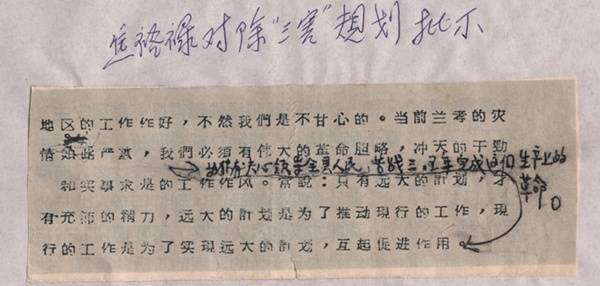 焦裕禄对除"三害"规划批示
地区的工作作好，不然我們是不甘心的。当前兰考的灾
情如此严重，我們必须有偉大的革命胆略，冲天的干勁
有决心领导全县人民，苦战三、五年完成这個生产上的
革命。
和实事求是的工作作风。常說：只有远大的計划，才
有充沛的精力，远大的計划是为了推动現行的工作，現
行的工作是为了实現远大的計划，互起促进作用。